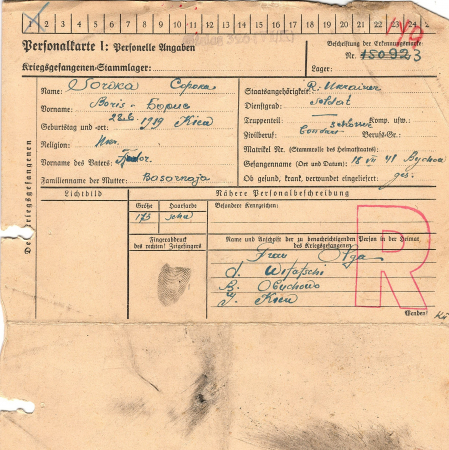 1 2 3 4 5 6 7 8 9 10 11 12 13 14 15 16 17 18 19 20 21 22 23 24 25
Personalkarte I: Personelle Angaben
Kriegsgefangenen-Stammlager:
Beschriftung der Erkennungsmarke
Nr. 150923
Lager:
Des Kriegsgefangenen
Name: Soroka Сорока
Vorname: Boris - Борис
Geburtstag und -ort: 1919 Kiew
Religion:
Vorname des Vaters: Fedor
Familienname der Mutter:
Staatsangehörigkeit: R. Ukrainer
Dienstgrad: Soldat
Truppenteil: Komp. usw.:
Zivilberuf: Schlosser Berufs-Gr.
Matrikel Nr. (Stammrolle des Heimatstaates)
Gefangennahme (Ort und Datum): 18 VII 41 Bychow
Ob gesund, krank, verwundet eingeliefert: ges.
Lichtbild
Nähere Personalbeschreibung
Größe
Haarfarbe
173
schw
Besondere Kennzeichen:
Fingerabdruck
des rechten! Zeigefingers
Name und Anschrift der zu benachrichtigenden Person in der Heimat
des Kriegsgefangenen
Frau Olga
Kiew
R
Wenden!